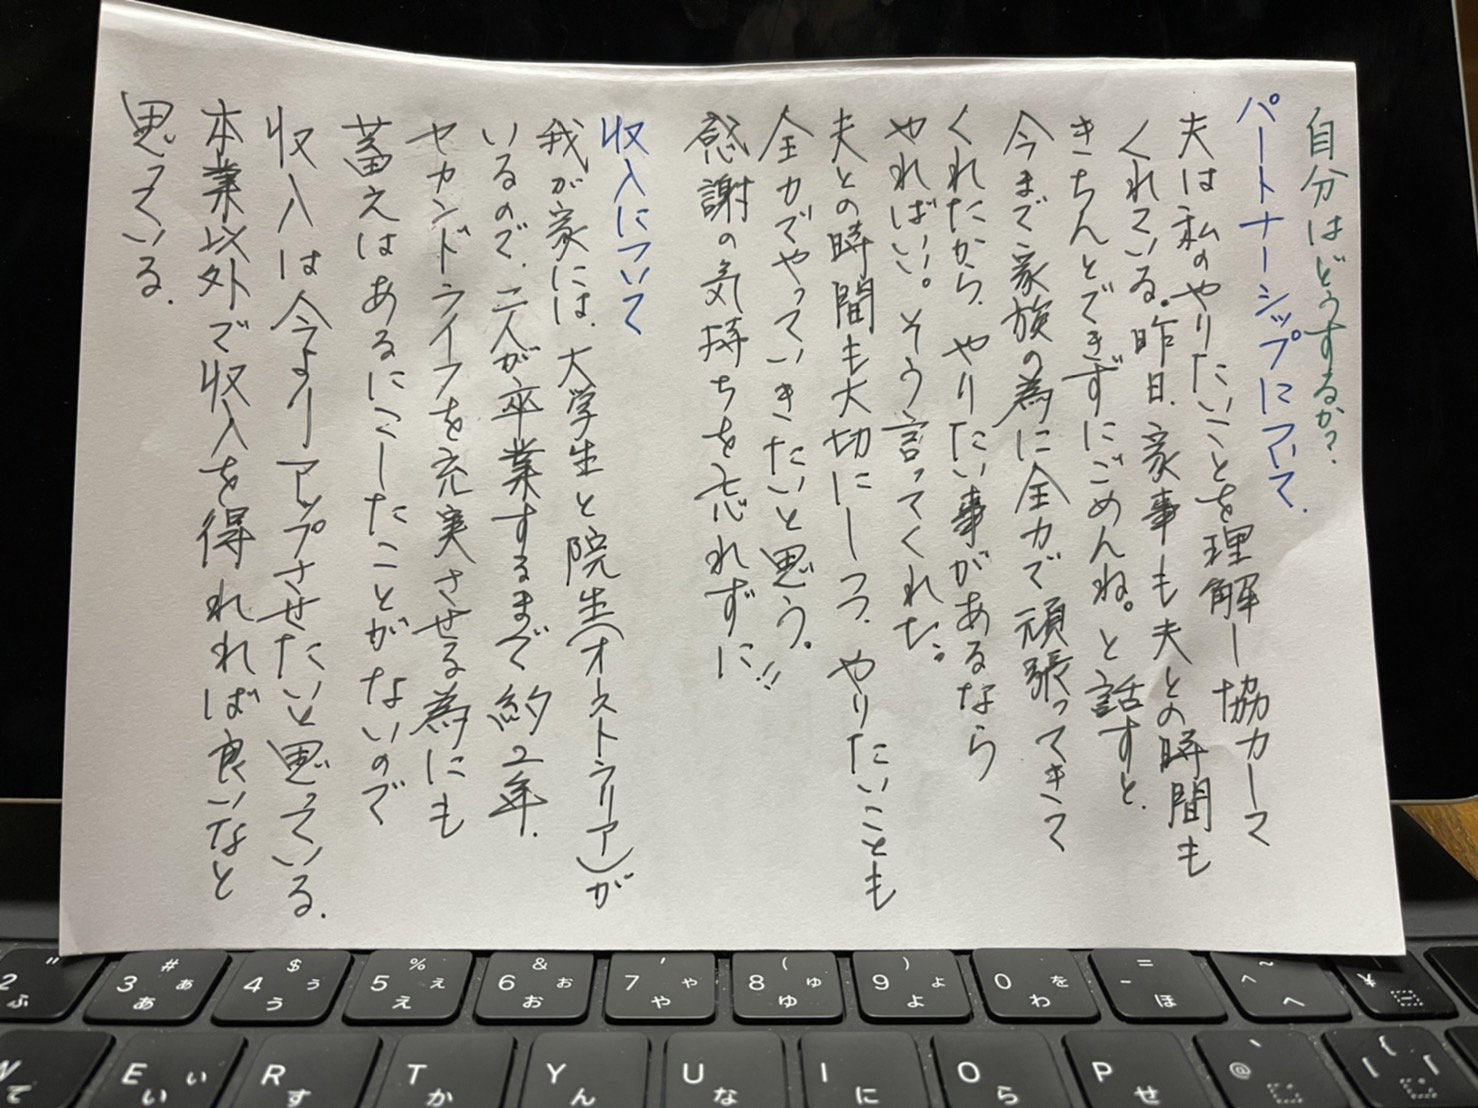 自分はどうするか?
パートナーシップについて.
夫は私のやりたいことを理解し協力して
くれている。昨日、家事も夫との時間も
きちんとできずにごめんね。と話すと、
今まで家族の為に全力で頑張ってきて
くれたから、やりたい事があるなら
やればいい。そう言ってくれた。
夫との時間も大切にしつつ、やりたいことも
全力でやっていきたいと思う。
感謝の気持ちを忘れずに!!
収入について
我が家には、大学生と院生(オーストラリア)が
いるので、二人が卒業するまで約2年.
セカンドライフを充実させる為にも
蓄えはあるにこしたことがないので
収入は今よりアップさせたいと思っている.
本業以外で収入を得れれば良いなと
思っている.
2 " ふ
3 # あ ぁ
4 $ う ぅ
5 % え ぇ
6 & お ぉ
7 ' や ゃ
8 ( ゆ ゅ
9 ) よ ょ
0 わ を
- = ほ
^ ~ へ
¥ |
W て
E い ぃ
R す
T か
Y ん
U な
I に
O ら
P せ
@ `
[ {